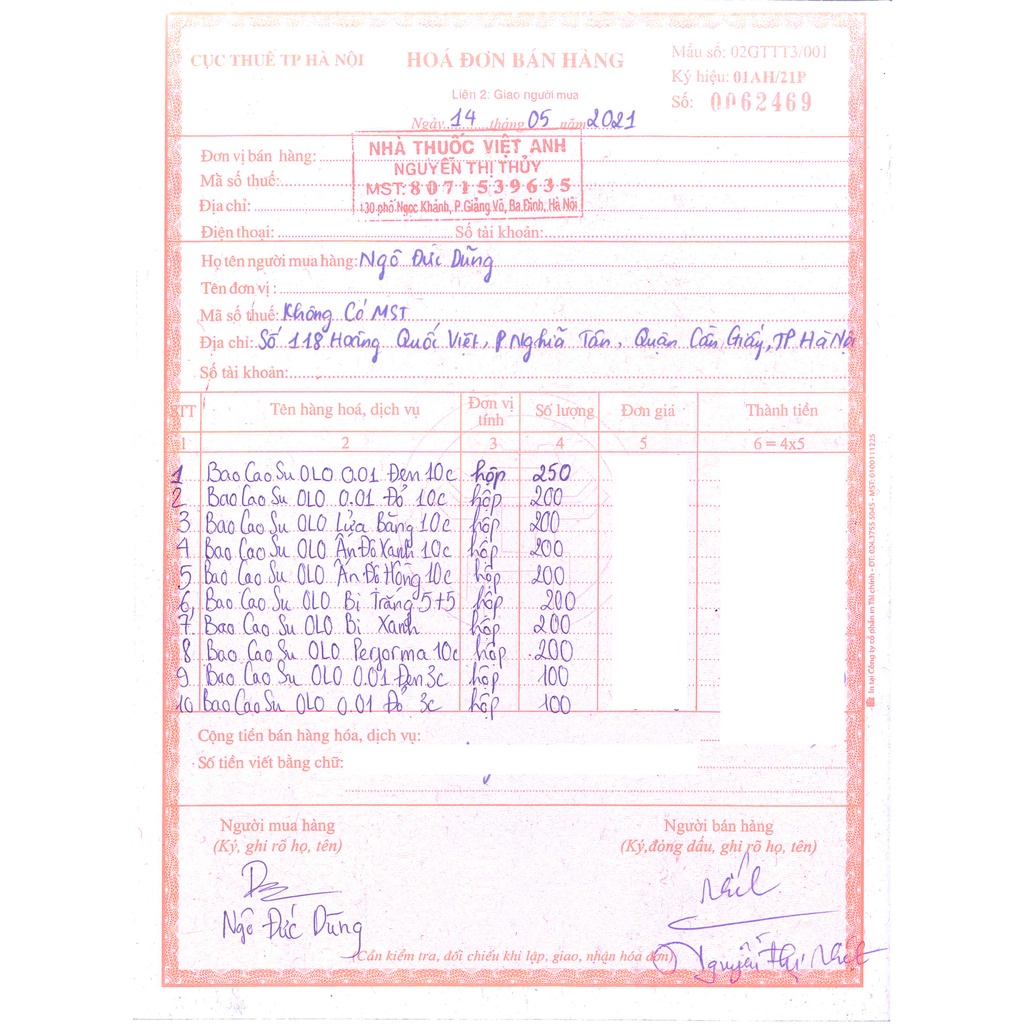 CỤC THUẾ TP HÀ NỘI
HOÁ ĐƠN BÁN HÀNG
Liên 2: Giao người mua
Ngày 14 tháng 05 năm 2021
Mẫu số: 02GTTT3/001
Ký hiệu: 01AH/21P
Số: 0062469
Đơn vị bán hàng:
Mã số thuế:
Địa chỉ:
NHÀ THUỐC VIỆT ANH
NGUYỄN THỊ THỦY
MST: 8071539635
130 phố Ngọc Khánh, P.Giảng Võ, Ba Đình, Hà Nội
Điện thoại: Số tài khoản:
Họ tên người mua hàng: Ngô Đức Dũng
Tên đơn vị:
Mã số thuế: Không Có MST
Địa chỉ: Số 118 Hoàng Quốc Việt, P Nghĩa Tân, Quận Cầu Giấy, TP Hà Nội
Số tài khoản:
STT Tên hàng hoá, dịch vụ Đơn vị tính Số lượng Đơn giá Thành tiền
1 2 3 4 5 6 = 4x5
1 Bao Cao Su OLO 0.01 Đen 10c hộp 250
2 Bao Cao Su OLO 0.01 Đỏ 10c hộp 200
3 Bao Cao Su OLO Lửa Băng 10c hộp 200
4 Bao Cao Su OLO Ấn Độ Xanh 10c hộp 200
5 Bao Cao Su OLO Ấn Độ Hồng 10c hộp 200
6, Bao Cao Su OLO Bi Trắng 5+5 hộp 200
7. Bao Cao Su OLO Bi Xanh hộp 200
8 Bao Cao Su OLO Performa 10c hộp 200
9 Bao Cao Su OLO 0.01 Đen 3c hộp 100
10 Bao Cao Su OLO 0.01 Đỏ 3c hộp 100
Cộng tiền bán hàng hóa, dịch vụ:
Số tiền viết bằng chữ:
Người mua hàng
(Ký, ghi rõ họ, tên)
Ngô Đức Dũng
Người bán hàng
(Ký,đóng dấu, ghi rõ họ, tên)
Nguyễn Thị
(Cần kiểm tra, đối chiếu khi lập, giao, nhận hóa đơn)
In tại Công ty cổ phần in Tài chính - ĐT: 024.3755 5045 - MST: 0100111225